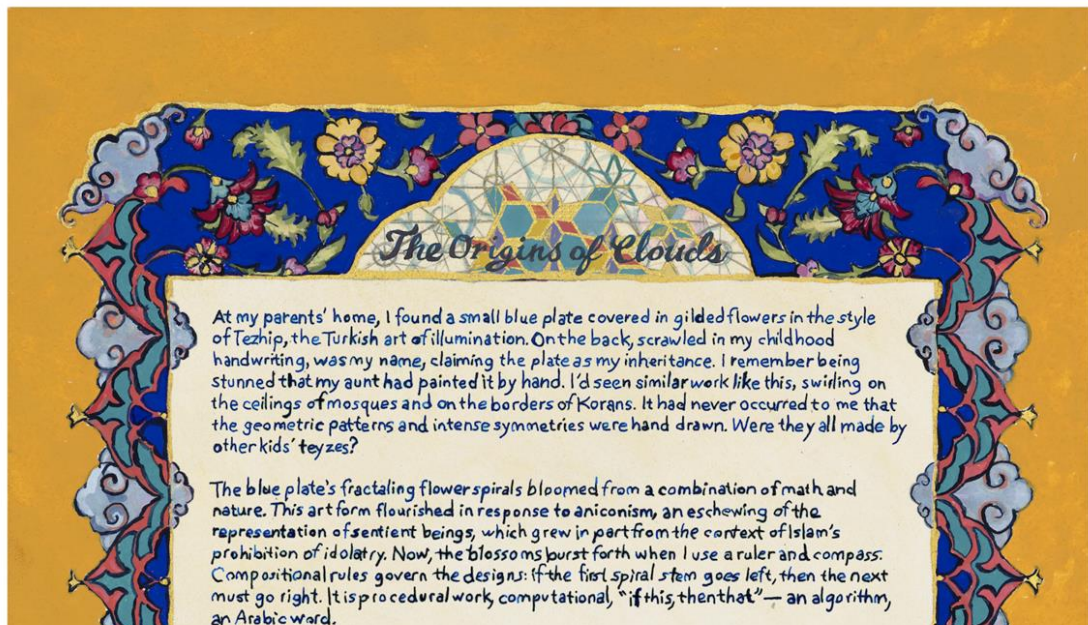 The Origins of Clouds
At my parents' home, I found a small blue plate covered in gilded flowers in the style
of Tezhip, the Turkish art of illumination. On the back, scrawled in my childhood
handwriting, was my name, claiming the plate as my inheritance. I remember being
stunned that my aunt had painted it by hand. I'd seen similar work like this, swirling on
the ceilings of mosques and on the borders of Korans. It had never occurred to me that
the geometric patterns and intense symmetries were hand drawn. Were they all made by
other kids' teyzes?
The blue plate's fractaling flower spirals bloomed from a combination of math and
nature. This art form flourished in response to aniconism, an eschewing of the
representation of sentient beings, which grew in part from the context of Islam's
prohibition of idolatry. Now, the blossoms burst forth when I use a ruler and compass.
Compositional rules govern the designs: if the first spiral stem goes left, then the next
must go right. It is procedural work, computational, "if this, then that" — an algorithm,
an Arabic word.